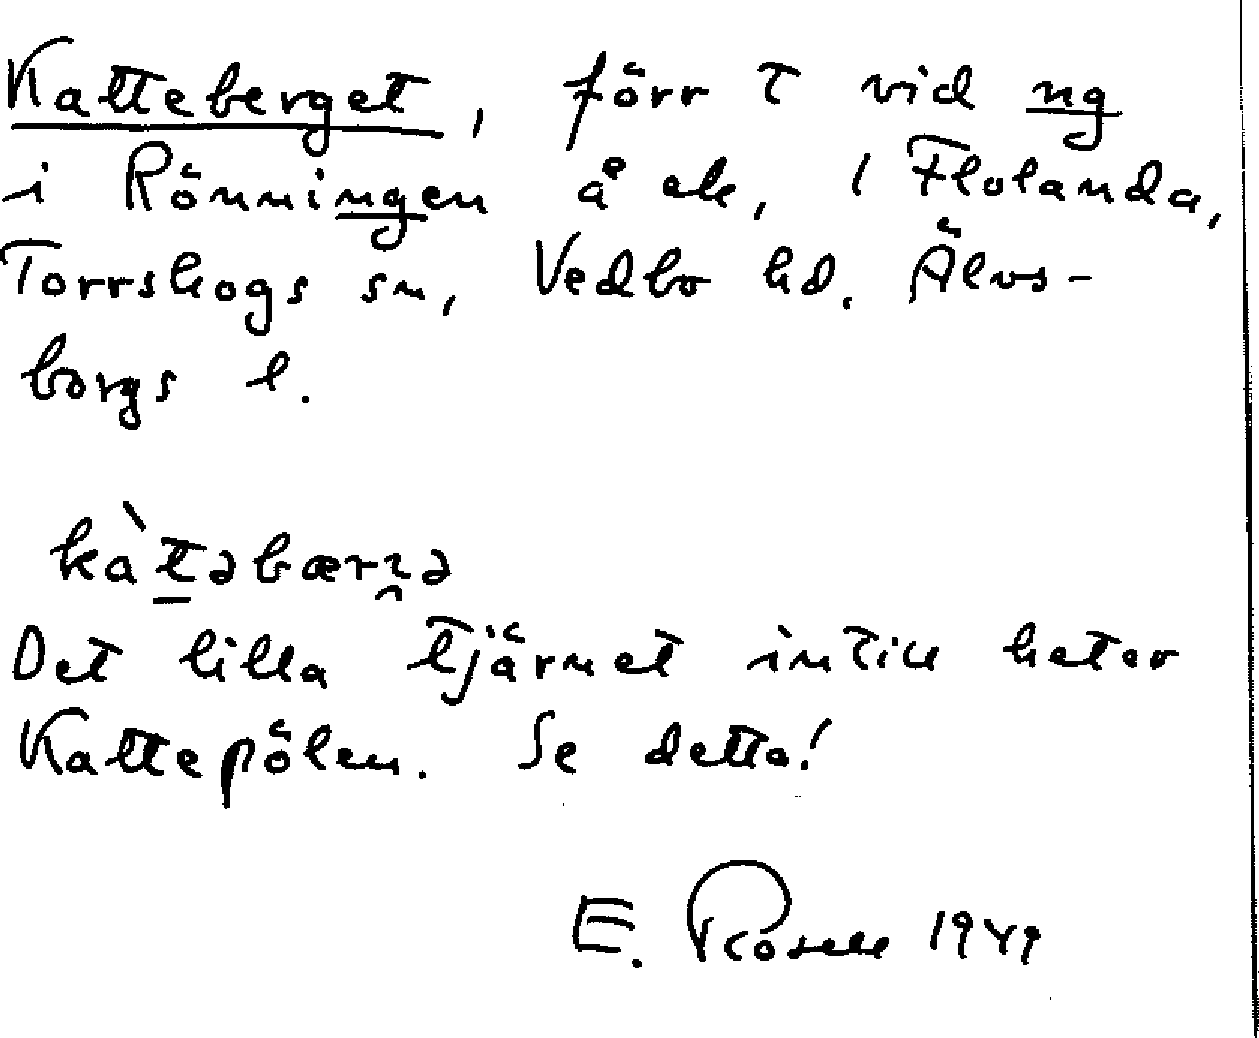 Katteberget, förr T vid ng
i Rönningen å ek, 1 Flolanda,
Torrskogs sn, Vedbo hd. Älvs-
borgs l.
kàtəbærɿə
Det lilla tjärnet intill heter
Kattepölen. Se detta!
E. Rosell 1949